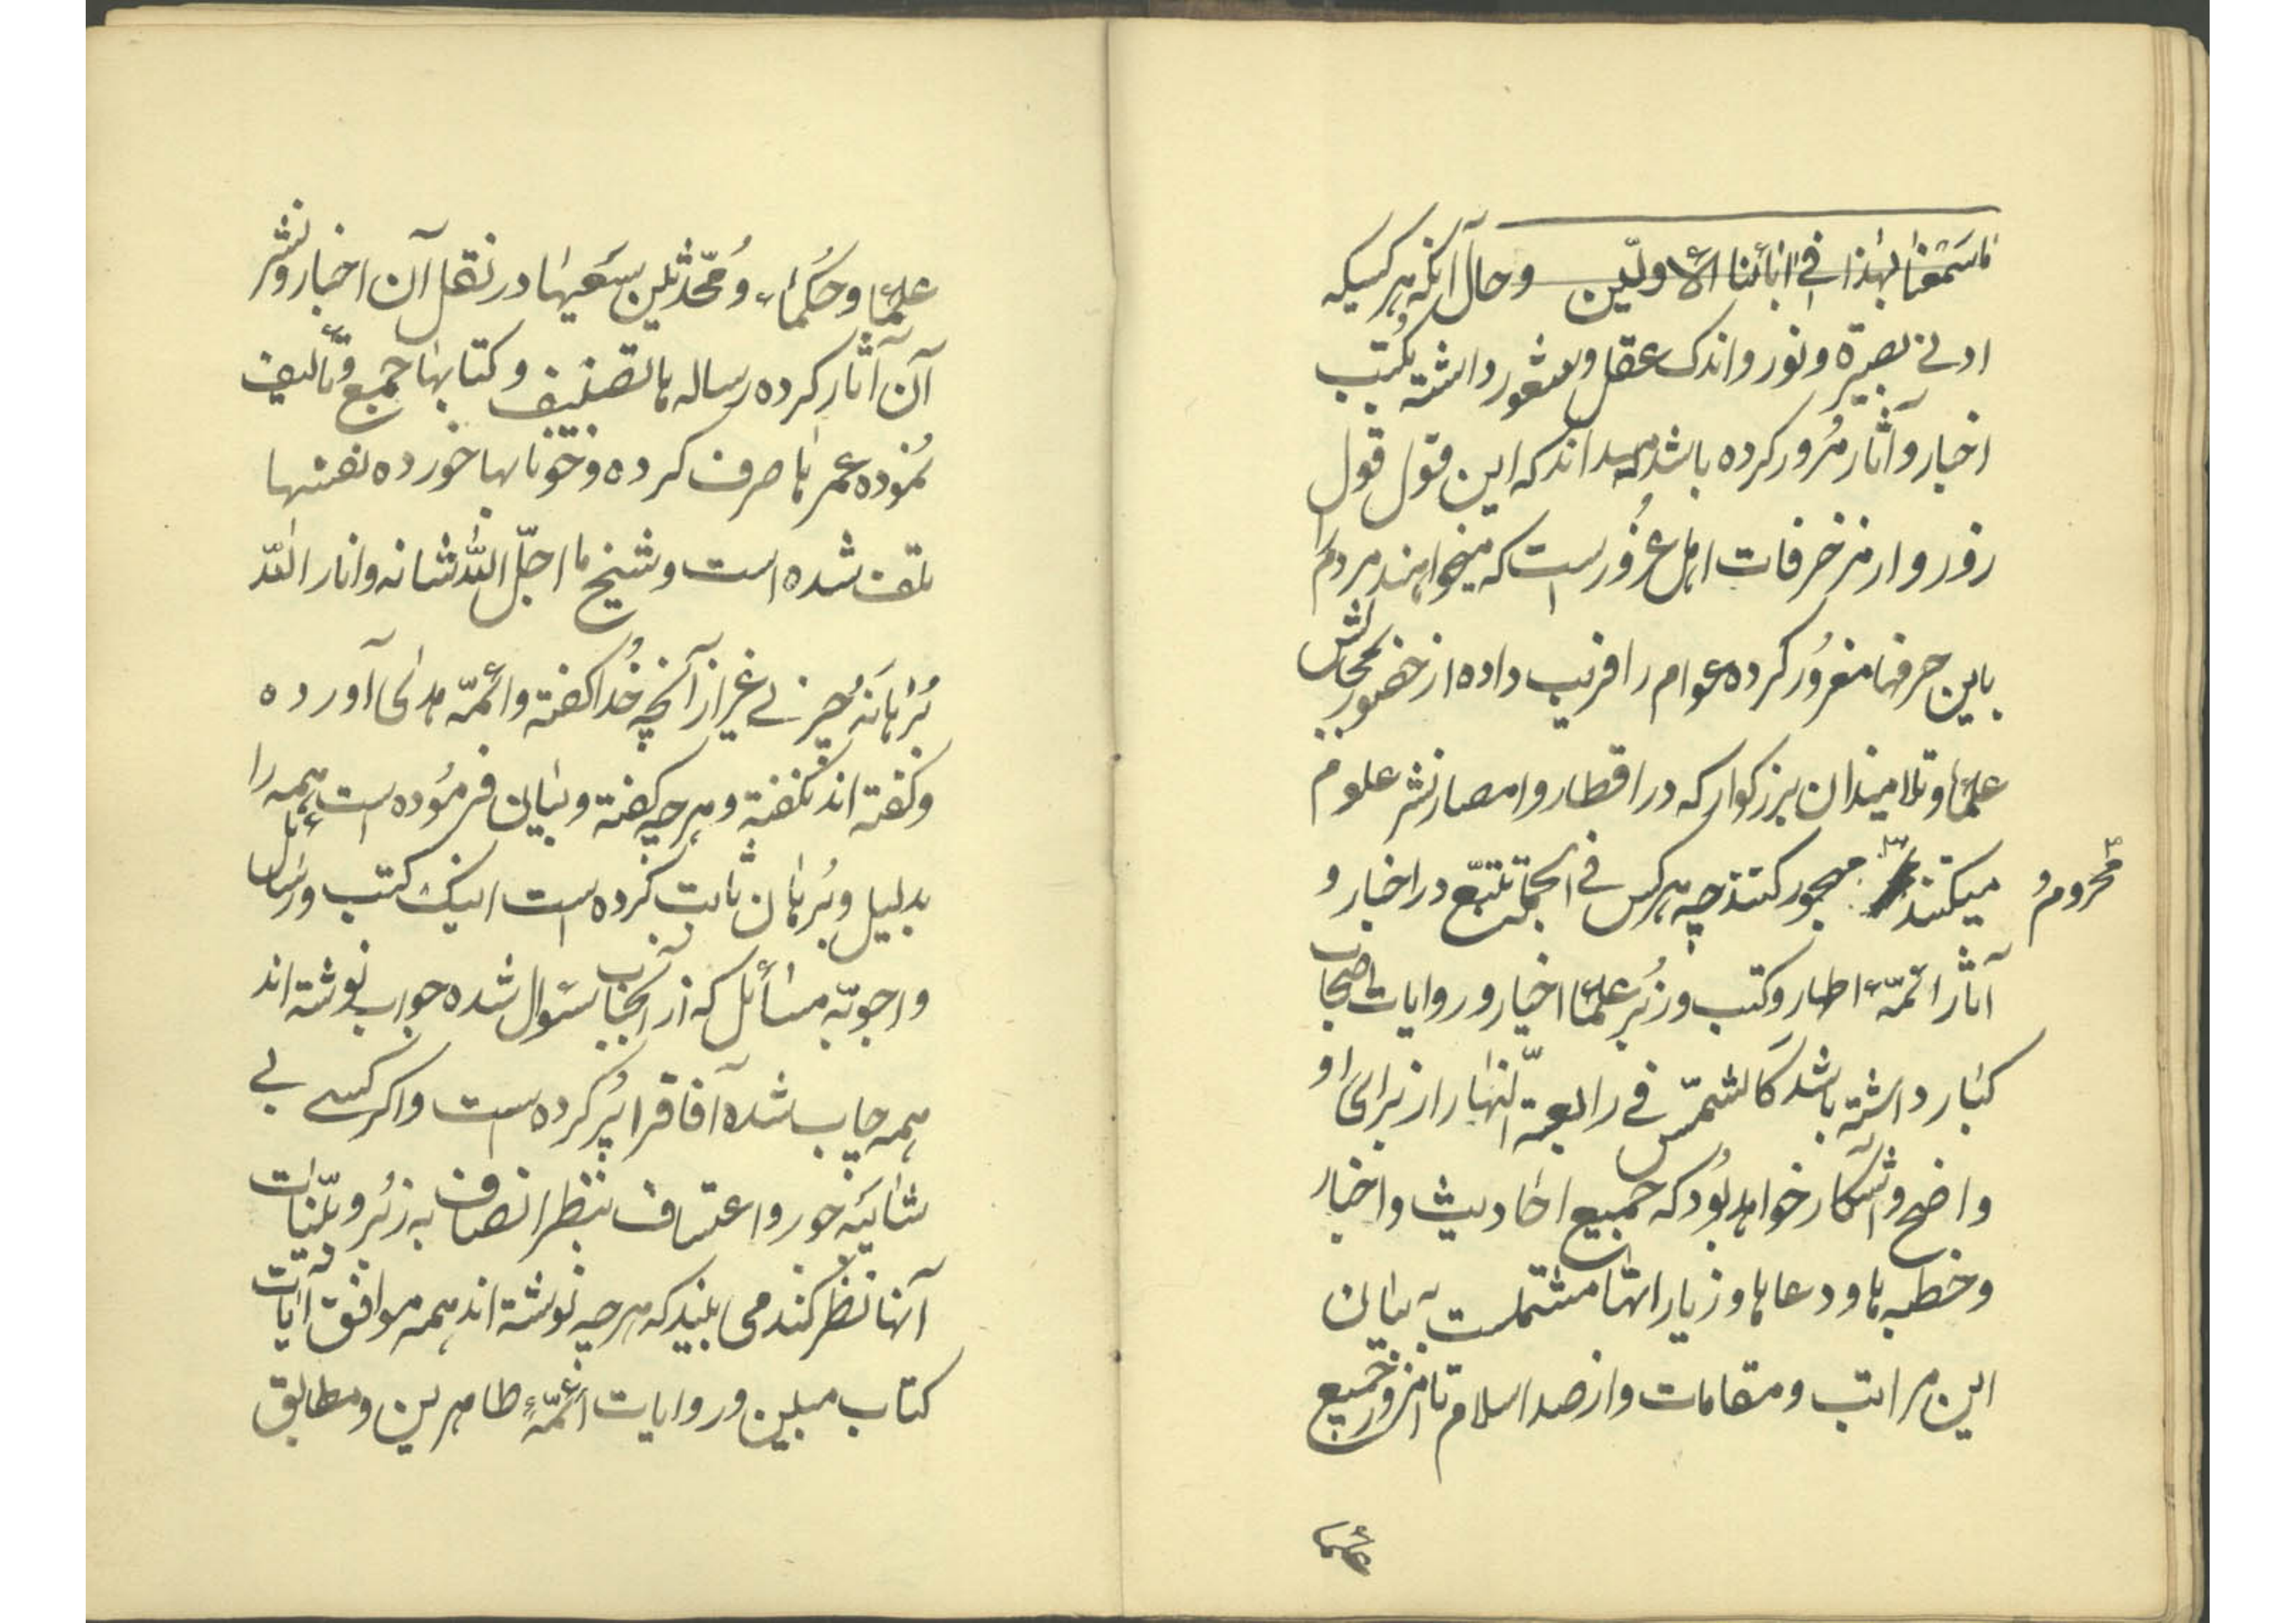 ماسمعنا بهذا في آبائنا الأولین وحال آنکه هر کسیکه
ادنی بصیرة ونور واندک عقل وشعور داشته بکتب
اخبار وآثار مُرور کرده باشد میداند که این قول قول
زور واز مزخرفات اهل غُرور است که میخواهند مردم را
باین حرفها مغرُور کرده عوام را فریب داده از حضور مجالس
علماء وتلامیذان بزرکوار که در اقطار وامصار نشر علوم
میکنند محروم و مهجور کنند چه هر کس فی الجمله تتبّع در اخبار و
آثار ائمّهٔ اطهار وکتب وزبُر علمآء اخیار وروایات اصحاب
کبار داشته باشد کالشّمس في رابعة النّهار از برای او
واضح وآشکار خواهد بُود که جمیع احادیث واخبار
وخطبه ها ودعاها وزیاراتها مشتملست به بیان
این مراتب ومقامات واز صدر اسلام تا امروز جمیع
علماء
علمآء وحُکمآء ومُحّدثین سَعیها در نقل آن اخبار ونشر
آن آثار کرده رساله ها تصنیف وکتابها جمع وتألیف
نمُوده عمرها صرف کرده وخونابها خورده نفسها
تلف شده است وشیخ ما اجلّ الله شانه وانار الله
بُرهانَهُ چیزی غیر از آنچه خُدا کفته وائمّه هدی آورده
وکفته اند نکفته وهر چه کفته وبیان فرمُوده است همه را
بدلیل وبُرهان ثابت کرده است اینک کتب ورسائل
واجوبهٔ مسائل که از آنجناب سئوال شده جواب نوشته اند
همه چاپ شده آفاقرا پُر کرده است واکر کسے بی
شائبهٔ جور واعتساف بنظر انصاف به زبُر وبیّنات
آنها نظر کند می بیند که هر چه نوشته اند همه موافق آیات
کتاب مبین وروایات ائمّهٔ طاهرین ومطابق